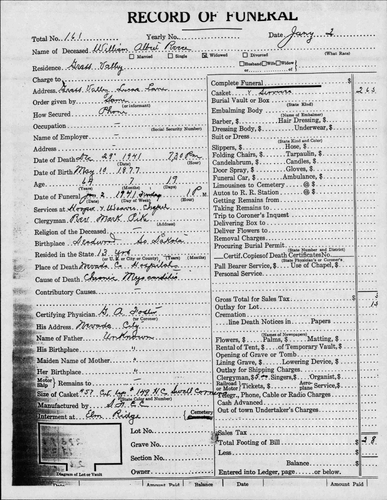 RECORD OF FUNERAL
Total No. 161 Yearly No. Date Jany 2
Name of Deceased William Albert
(What Race)
Married Single Widowed Divorced
Residence Grass Valley Husband Wife Widow
Charge to
Address Grass Valley Lane
Order given by Son
(or informant)
How Secured Phone
Occupation
(Social Security Number)
Name of Employer
Address
Date of Death Dec 29 1941 7 20 Pm
Date of Birth May 10 1877
Age 64 7 19
(Years) (Months) (Days)
Date of Funeral Jan 2 1942 Friday 1 P M
Services at Hooper & Weaver Chapel
Clergyman Rev. Mark
Religion of the Deceased
Birthplace Deadwood So. Dakota
Resided in the State 13 yrs
Place of Death Nevada Co Hospital
Cause of Death Chronic Myocarditis
Contributory Causes
Certifying Physician G. A. Foster
(or Coroner)
His Address Nevada City
Name of Father Unknown
His Birthplace "
Maiden Name of Mother "
Her Birthplace "
Motor Ship Remains to
Size of Casket
Manufactured by
Interment at Elm Ridge Cemetery
Lot No.
Grave No.
Section No.
Owner
Diagram of Lot or Vault
Complete Funeral $
Casket 265
Burial Vault or Box
(State Kind)
Embalming Body
(Name of Embalmer)
Barber, $ Hair Dressing, $
Dressing Body, $ Underwear, $
Suit or Dress
(State Kind)
Slippers, $ Hose, $
Folding Chairs, $ Tarpaulin, $
Candelabrum, $ Candles, $
Door Spray, $ Gloves, $
Funeral Car, $ Ambulance, $
Limousines to Cemetery @ $
Autos to R. R. Station @ $
Getting Remains from
Taking Remains to
Trip to Coroner's Inquest
Delivering Box to
Deliver Flowers to
Removal Charges
Procuring Burial Permit
(State Number and District)
Certif. Copies of Death Certificates No.
Pall Bearer Service, $ Use of Chapel, $
Personal Service
Gross Total for Sales Tax $
Outlay for Sales Tax
Cremation
line Death Notices in Papers
(Names of Newspapers)
Flowers, $ Palms, $ Matting, $
Rental of Tent, $ of Temporary Vault, $
Opening of Grave or Tomb
Lining Grave, $ Lowering Device, $
Outlay for Shipping Charges
Clergyman, $ Singers, $ Organist, $
Railroad or Motor Tickets, $ Aeroplane Service, $
Telegr., Phone, Cable or Radio Charges
Cash Advanced
Out of town Undertaker's Charges
SUB TOTAL
Total Footing of Bill $
Less
Balance
Entered into Ledger, page or below.
Amount Paid Balance Date Amount Paid